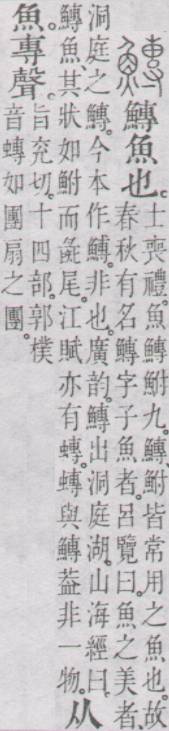 鱄 鱄魚也。
士喪禮。魚鱄鮒九。鱄鮒皆常用之魚也。故
春秋有名鱄字子魚者。呂覽曰。魚之美者、
洞庭之鱄。今本作鱒。非也。廣韵。鱄出洞庭湖。山海經曰。
鱄魚、其狀如鮒而彘尾。江賦亦有蟤。蟤與鱄葢非一物。
从
魚。專聲。
旨兖切。十四部。郭樸
音蟤如團扇之團。